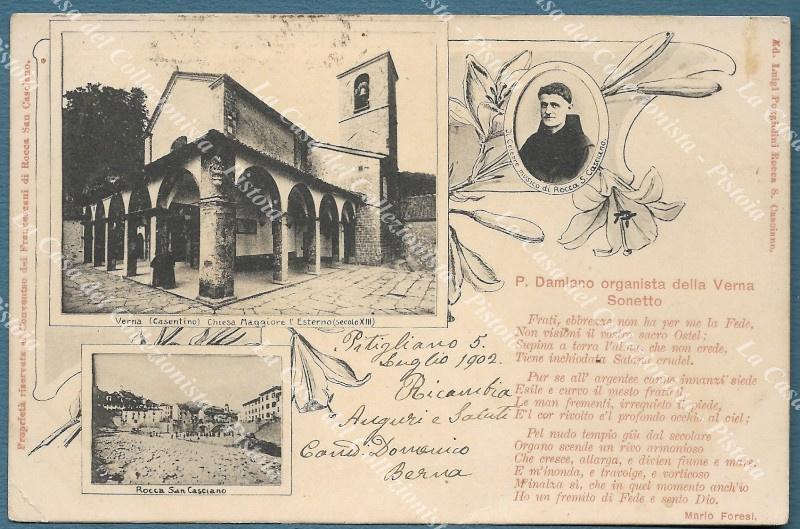 Proprietà riservata al Convento dei Francescani di Rocca San Casciano.
Verna (Casentino) Chiesa Maggiore l'Esterno (secolo XIII)
Il Celebre musico di Rocca S. Casciano.
Ed. Luigi Rocca S. Casciano.
P. Damiano organista della Verna
Sonetto
Frati, ebbrezze non ha per me la Fede,
Non visioni il vostro sacro Ostel;
Supina a terra l'alma, che non crede,
Tiene inchiodata Satana crudel.
Pur se all' argentee canne innanzi siede
Esile e curvo il mesto fraticel
Le man frementi, irrequieto il piede,
E'l cor rivolto e'l profondo occhio al ciel;
Pel nudo tempio giù dal secolare
Organo scende un rivo armonioso
Che cresce, allarga, e divien fiume e mare,
E m'inonda, e travolge, e vorticoso
M'inalza sì, che in quel momento anch'io
Ho un fremito di Fede e sento Dio.
Mario Foresi.
Pitigliano 5.
Luglio 1902.
Ricambia
Auguri e Saluti
Cand. Domenico
Berna
Rocca San Casciano
La Casa del Collezionista - Pistoia